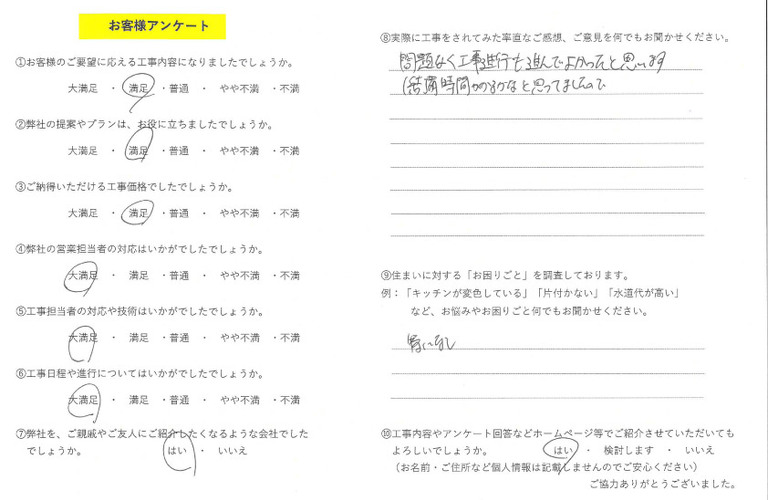 お客様アンケート
①お客様のご要望に応える工事内容になりましたでしょうか。
大満足 ・ 満足 ・普通 ・ やや不満 ・不満
②弊社の提案やプランは、お役に立ちましたでしょうか。
大満足 ・ 満足 ・普通 ・ やや不満 ・不満
③ご納得いただける工事価格でしたでしょうか。
大満足 ・ 満足 ・普通 ・ やや不満 ・不満
④弊社の営業担当者の対応はいかがでしたでしょうか。
大満足 ・ 満足 ・普通 ・ やや不満 ・不満
⑤工事担当者の対応や技術はいかがでしたでしょうか。
大満足 ・ 満足 ・普通 ・ やや不満 ・不満
⑥工事日程や進行についてはいかがでしたでしょうか。
大満足 ・ 満足 ・普通 ・ やや不満 ・不満
⑦弊社を、ご親戚やご友人にご紹介したくなるような会社でした
でしょうか。 はい ・ いいえ
⑧実際に工事をされてみた率直なご感想、ご意見を何でもお聞かせください。
問題なく工事進行も進んでよかったと思います
(結構時間かかるかなと思ってましたので
⑨住まいに対する「お困りごと」を調査しております。
例：「キッチンが変色している」「片付かない」「水道代が高い」
など、お悩みやお困りごと何でもお聞かせください。
特になし
⑩工事内容やアンケート回答などホームページ等でご紹介させていただいても
よろしいでしょうか。 はい ・ 検討します ・ いいえ
（お名前・ご住所など個人情報は記載しませんのでご安心ください）
ご協力ありがとうございました。